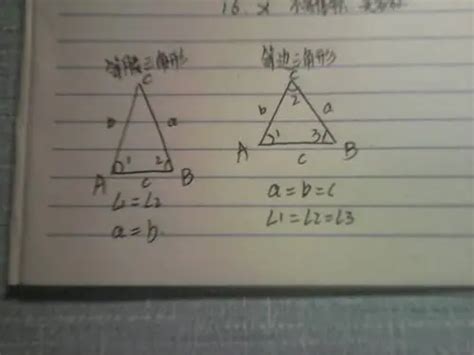 16. x
等腰三角形
C
b a
1 2
A c B
∠1=∠2
a=b
等边三角形
C
2
b a
1 3
A c B
a=b=c
∠1=∠2=∠3